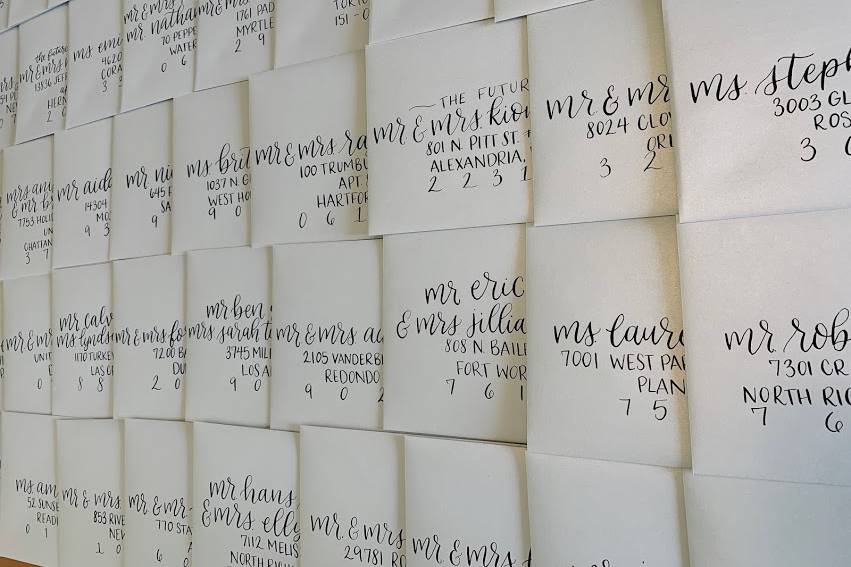 mr & mrs
mr. natha
70 PEPPE
WATER
0 6
1761 PAD
MYRTLE
2 9
151-0
the future
mr & mrs
13836 JEFF
HERN
ms. emi
4620
CORA
3
THE FUTUR
mr & mrs. kio
801 N. PITT ST. #
ALEXANDRIA,
2 2 3 1
mr & mr
8024 CLO
ORL
3 2
ms. steph
3003 GL
ROS
3 0
mrs. an
& mr b
7753 HOLI
UN
CHATTAN
3 7
mr aida
14304
MO
9 3
mr ni
645 F
SA
9
ms brit
1037 N G
WEST HO
9 0
mr & mrs. ra
100 TRUMBU
APT.
HARTFOR
0 6 1
mr & m
UNIT
0
mr calv
ms lynds
1170 TURKEY
LAS C
8 8
mr & mrs fo
7200 BA
DU
2 0
mr ben
mrs sarah t
3745 MIL
LOS A
9 0
mr & mrs au
2105 VANDERB
REDONDO
9 0 2
mr eric
& mrs jillia
808 N. BAILE
FORT WOR
7 6 1
ms laure
7001 WEST PA
PLAN
7 5
mr. rob
7301 CR
NORTH RIC
7 6
ms. am
52 SUNSE
READI
0 1
mr & mrs.
853 RIVE
NEW
1 0
mr & mr
770 STA
6
mr hans
& mrs elly
7112 MELIS
NORTH RICH
mr. & mrs
29781 RO
mr & mrs